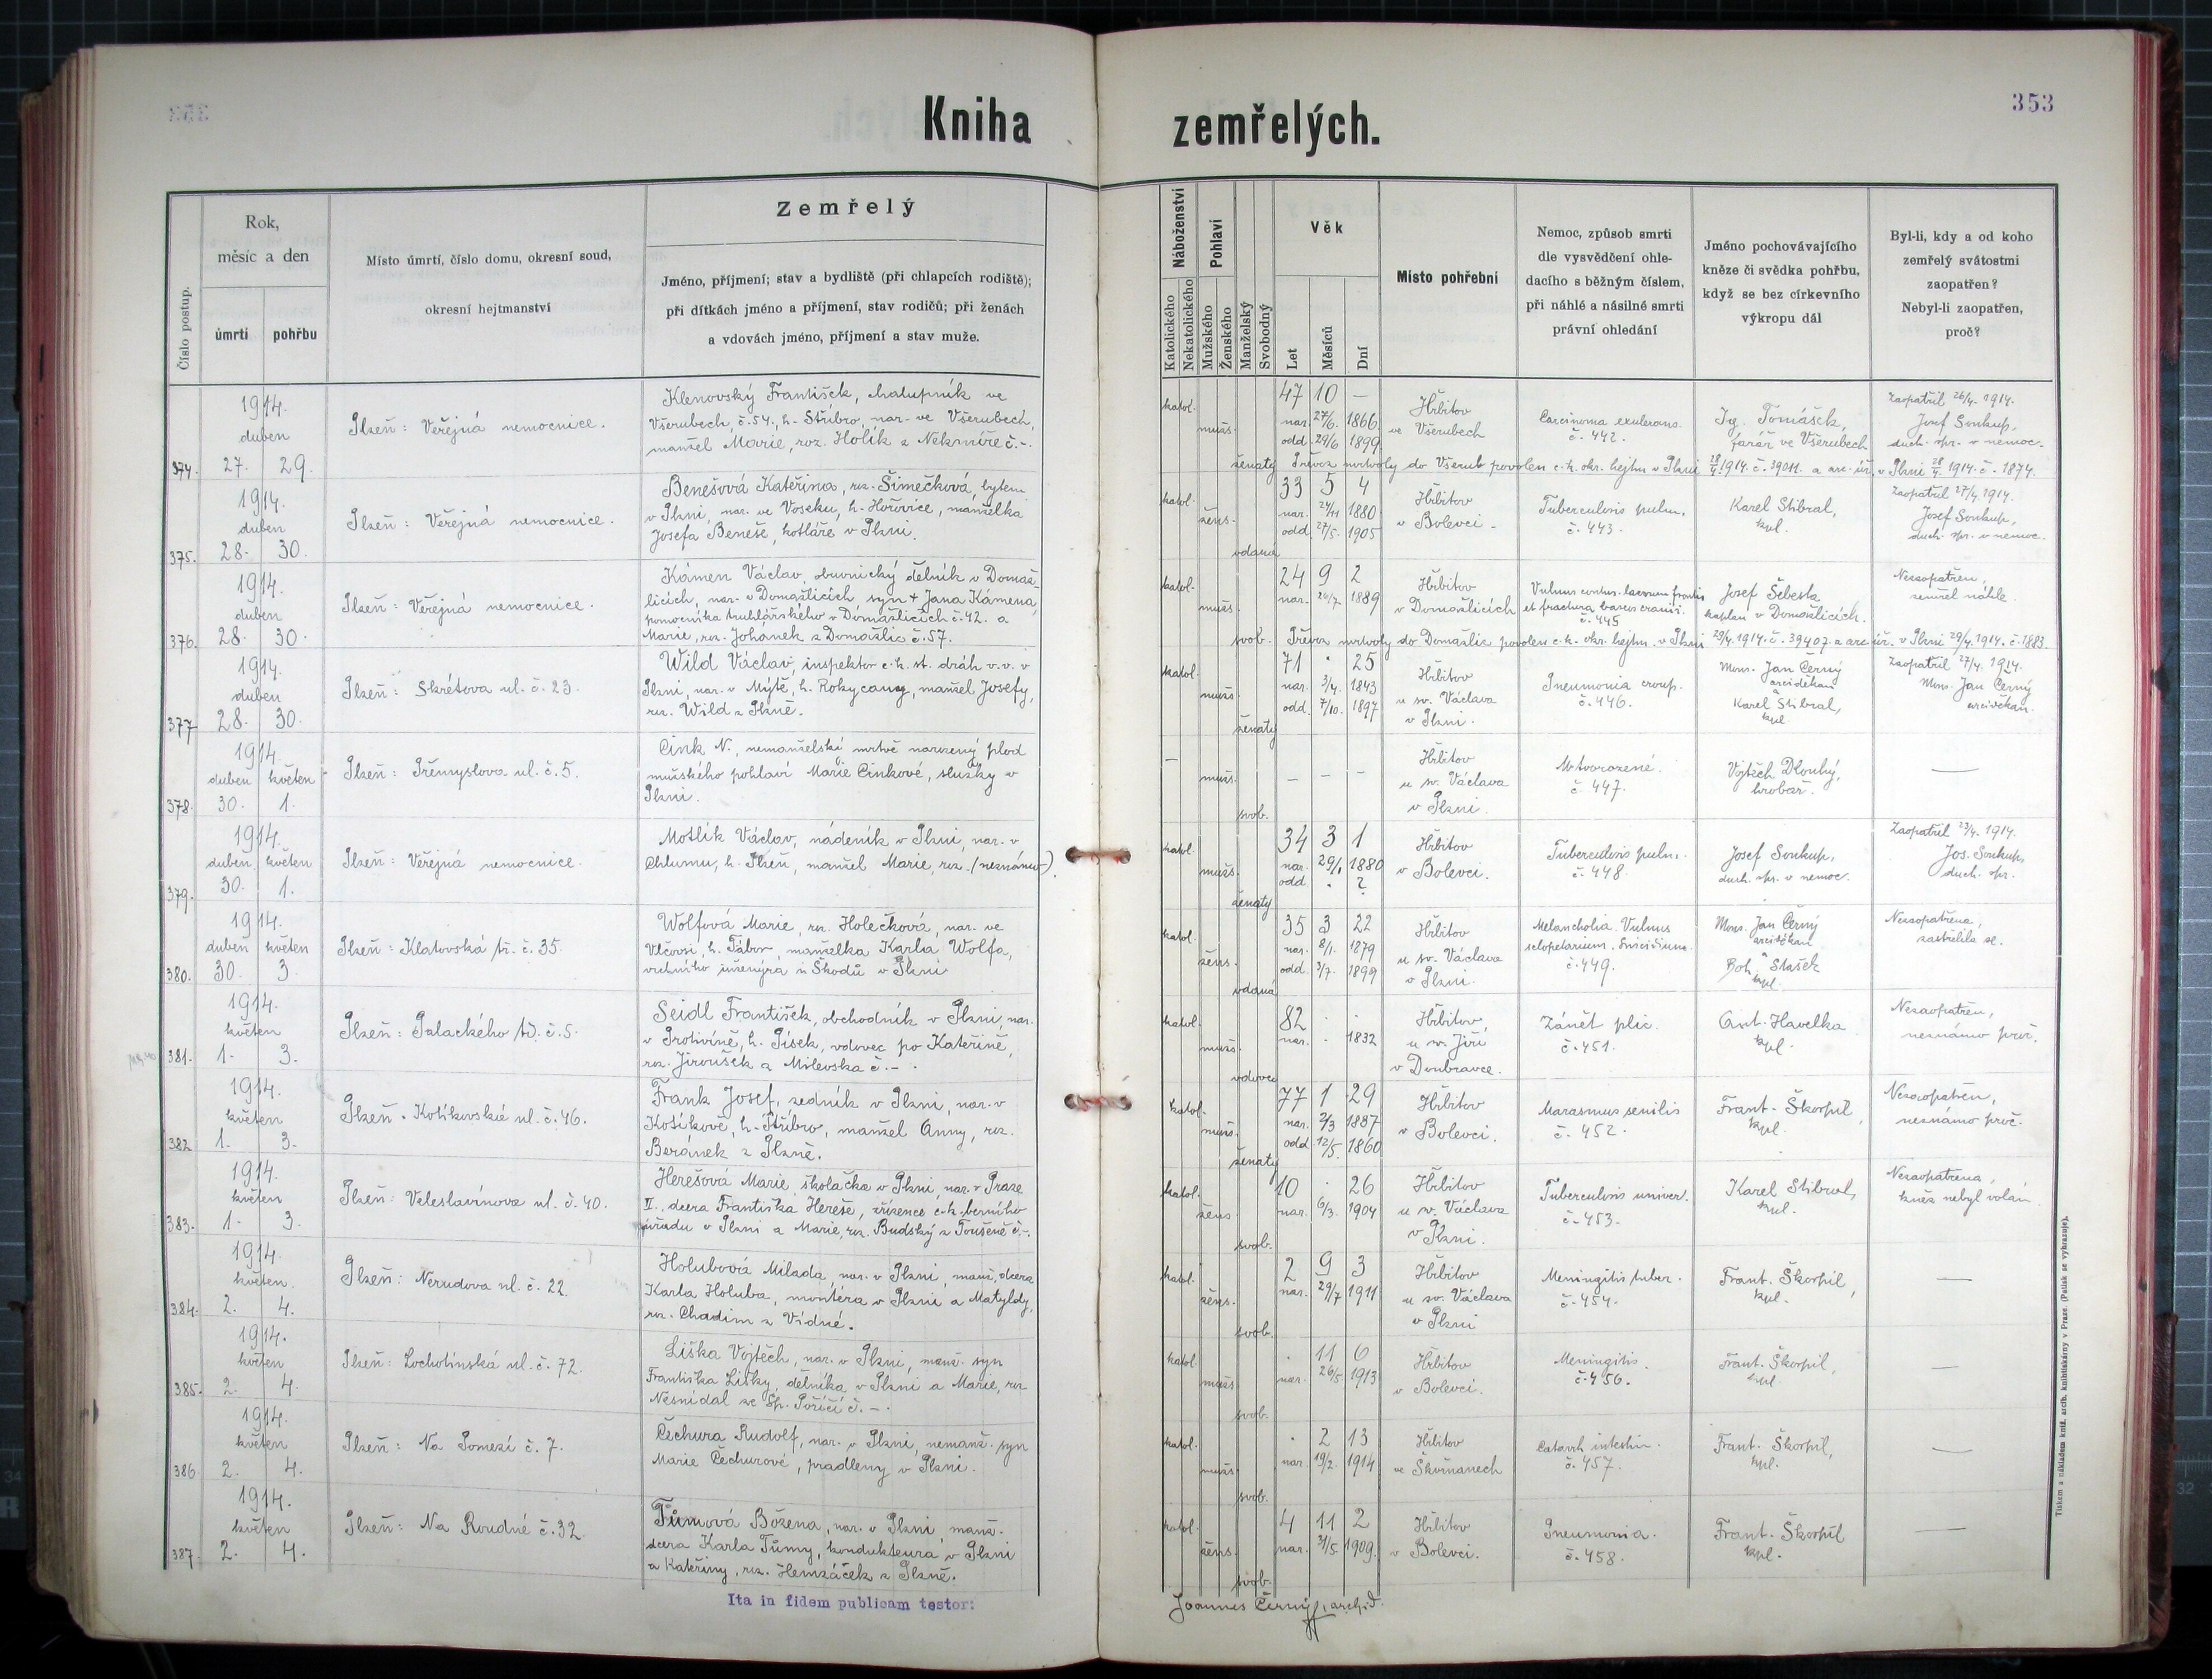 Kniha zemřelých.
353
Číslo postup.
Rok,
měsíc a den
úmrtí
pohřbu
Místo úmrtí, číslo domu, okresní soud,
okresní hejtmanství
Zemřelý
Jméno, příjmení; stav a bydliště (při chlapcích rodiště);
při dítkách jméno a příjmení, stav rodičů; při ženách
a vdovách jméno, příjmení a stav muže.
Náboženství
Katolického
Nekatolického
Pohlaví
Mužského
Ženského
Manželský
Svobodný
Věk
Let
Měsíců
Dní
Místo pohřební
Nemoc, způsob smrti
dle vysvědčení ohle-
dacího s běžným číslem,
při náhlé a násilné smrti
právní ohledání
Jméno pochovávajícího
kněze či svědka pohřbu,
když se bez církevního
výkropu dál
Byl-li, kdy a od koho
zemřelý svátostmi
zaopatřen?
Nebyl-li zaopatřen,
proč?
374.
1914.
duben
27. 29.
Plzeň: Veřejná nemocnice.
Klenovský František, chalupník ve
Všerubech, č. 54., h. Stříbro, nar. ve Všerubech,
manžel Marie, roz. Holík z Nekmíře č. -.
katol.
mužs.
ženatý
47 10 —
nar. 27/6. 1866
odd. 29/6 1899
Hřbitov
ve Všerubech
Carcinoma exulcerans.
č. 442.
Ig. Tomášek,
farář ve Všerubech
Zaopatřil 26/4. 1914.
Josef Soukup,
duch. spr. v nemoc.
Převoz mrtvoly do Všerub povolen c. k. okr. hejtm. v Plzni 28/4 1914. č. 39011. a arc. úř. v Plzni 28/4. 1914. č. 1874.
375.
1914.
duben
28. 30.
Plzeň: Veřejná nemocnice.
Benešová Kateřina, roz. Šimečková, bytem
v Plzni, nar. ve Voseku, h. Hořovice, manželka
Josefa Beneše, kotláře v Plzni.
katol.
žens.
vdaná
33 5 4
nar. 24/11 1880
odd. 27/5. 1905
Hřbitov
v Bolevci.
Tuberculosis pulm.
č. 443.
Karel Stibral,
kpl.
Zaopatřil 27/4. 1914.
Josef Soukup,
duch. spr. v nemoc.
376.
1914.
duben
28. 30.
Plzeň: Veřejná nemocnice.
Kámen Václav, obuvnický dělník v Domaž-
licích, nar. v Domažlicích syn + Jana Kámena,
pomocníka truhlářského v Domažlicích č. 42. a
Marie, roz. Johanek z Domažlic č. 57.
katol.
mužs.
svob.
24 9 2
nar. 26/7. 1889
Hřbitov
v Domažlicích
Vulnus contus. lacerum frontis
et fractura baseos cranii.
č. 445
Josef Šebesta
kaplan v Domažlicích.
Nezaopatřen,
zemřel náhle.
Převoz mrtvoly do Domažlic povolen c. k. okr. hejtm. v Plzni 29/4. 1914. č. 39407. a arc. úř. v Plzni 29/4. 1914. č. 1883.
377
1914.
duben
28. 30.
Plzeň: Skrétova ul. č. 23.
Wild Václav, inspektor c. k. st. dráh v. v. v
Plzni, nar. v Mýtě, h. Rokycany, manžel Josefy,
roz. Wild z Plzně.
katol.
mužs.
ženatý
71 . 25
nar. 3/4. 1843
odd. 7/10. 1897
Hřbitov
u sv. Václava
v Plzni.
Pneumonia croup.
č. 446.
Mons. Jan Černý
arciděkan
a
Karel Stibral,
kpl.
Zaopatřil 27/4. 1914.
Mons. Jan Černý
arciděkan.
378.
1914.
duben květen
30. 1.
Plzeň: Přemyslova ul. č. 5.
Cink N., nemanželský mrtvě narozený plod
mužského pohlaví Marie Cinkové, služky v
Plzni.
—
mužs.
svob.
— — —
Hřbitov
u sv. Václava
v Plzni.
Mrtvorozené.
č. 447.
Vojtěch Dlouhý,
hrobař.
—
379.
1914.
duben květen
30. 1.
Plzeň: Veřejná nemocnice.
Motlík Václav, nádeník v Plzni, nar. v
Chlumu, h. Plzeň, manžel Marie, roz. (neznámo).
katol.
mužs.
ženatý
34 3 1
nar. 29/1 1880
odd . ?
Hřbitov
v Bolevci.
Tuberculosis pulm.
č. 448.
Josef Soukup,
duch. spr. v nemoc.
Zaopatřil 23/4. 1914.
Jos. Soukup,
duch. spr.
380.
1914.
duben květen
30. 3.
Plzeň: Klatovská tř. č. 35.
Wolfová Marie, roz. Holečková, nar. ve
Vlčovsi, h. Tábor, manželka Karla Wolfa,
vrchního inženýra u Škodů v Plzni.
katol.
žens.
vdaná
35 3 22
nar. 8/1. 1879
odd. 3/7. 1899
Hřbitov
u sv. Václava
v Plzni.
Melancholia. Vulnus
sclopetarium. Suicidium.
č. 449.
Mons. Jan Černý
arciděkan
a
Boh. Stašek
kpl.
Nezaopatřena,
zastřelila se.
381.
1914.
květen
1. 3.
Plzeň: Palackého tř. č. 5.
Seidl František, obchodník v Plzni, nar.
v Protivíně, h. Písek, vdovec po Kateřině,
roz. Jiroušek z Milevska č. -.
katol.
mužs.
vdovec
82 . .
nar. . 1832
Hřbitov
u sv. Jiří
v Doubravce.
Zánět plic.
č. 451.
Ant. Havelka
kpl.
Nezaopatřen,
neznámo proč.
382
1914.
květen
1. 3.
Plzeň. Kotíkovská ul. č. 46.
Frank Josef, zedník v Plzni, nar. v
Kotíkově, h. Stříbro, manžel Anny, roz.
Beránek z Plzně.
katol.
mužs.
ženatý
77 1 29
nar. 2/3 1837
odd. 12/5. 1860
Hřbitov
v Bolevci.
Marasmus senilis
č. 452.
Frant. Škorpil,
kpl.
Nezaopatřen,
neznámo proč.
383.
1914.
květen
1. 3.
Plzeň: Veleslavínova ul. č. 40.
Herešová Marie, školačka v Plzni, nar. v Praze
II., dcera Františka Hereše, zřízence c. k. berního
úřadu v Plzni a Marie, roz. Budský z Toušeně č. -.
katol.
žens.
svob.
10 . 26
nar. 6/3. 1904
Hřbitov
u sv. Václava
v Plzni.
Tuberculosis univer.
č. 453.
Karel Stibral,
kpl.
Nezaopatřena,
kněz nebyl volán.
384.
1914.
květen.
2. 4.
Plzeň: Nerudova ul. č. 22.
Holubová Milada, nar. v Plzni, manž. dcera
Karla Holuba, montéra v Plzni a Matyldy,
roz. Chadim z Vídně.
katol.
žens.
svob.
2 9 3
nar. 29/7 1911
Hřbitov
u sv. Václava
v Plzni
Meningitis tuber.
č. 454.
Frant. Škorpil,
kpl.
—
385.
1914.
květen
2. 4.
Plzeň: Lochotínská ul. č. 72.
Liška Vojtěch, nar. v Plzni, manž. syn
Františka Lišky, dělníka v Plzni a Marie, roz.
Nesnídal ze Sp. Poříčí č. -.
katol.
mužs.
svob.
. 11 6
nar. 26/5 1913
Hřbitov
v Bolevci.
Meningitis.
č. 456.
Frant. Škorpil,
kpl.
—
386
1914.
květen
2. 4.
Plzeň: Na Pomezí č. 7.
Čechura Rudolf, nar. v Plzni, nemanž. syn
Marie Čechurové, pradleny v Plzni.
katol.
mužs.
svob.
. 2 13
nar. 19/2. 1914
Hřbitov
ve Skvrňanech
Catarrh intestin.
č. 457.
Frant. Škorpil,
kpl.
—
387.
1914.
květen
2. 4.
Plzeň: Na Roudné č. 32.
Tůmová Božena, nar. v Plzni, manž.
dcera Karla Tůmy, kondukteura v Plzni
a Kateřiny, roz. Hemzáček z Plzně.
katol.
žens.
svob.
4 11 2
nar. 31/5. 1909.
Hřbitov
v Bolevci.
Pneumonia.
č. 458.
Frant. Škorpil
kpl.
—
Ita in fidem publicam testor:
Joannes Černý, archid.
Tiskem a nákladem kníž. arcib. knihtiskárny v Praze. (Patisk se vyhrazuje).